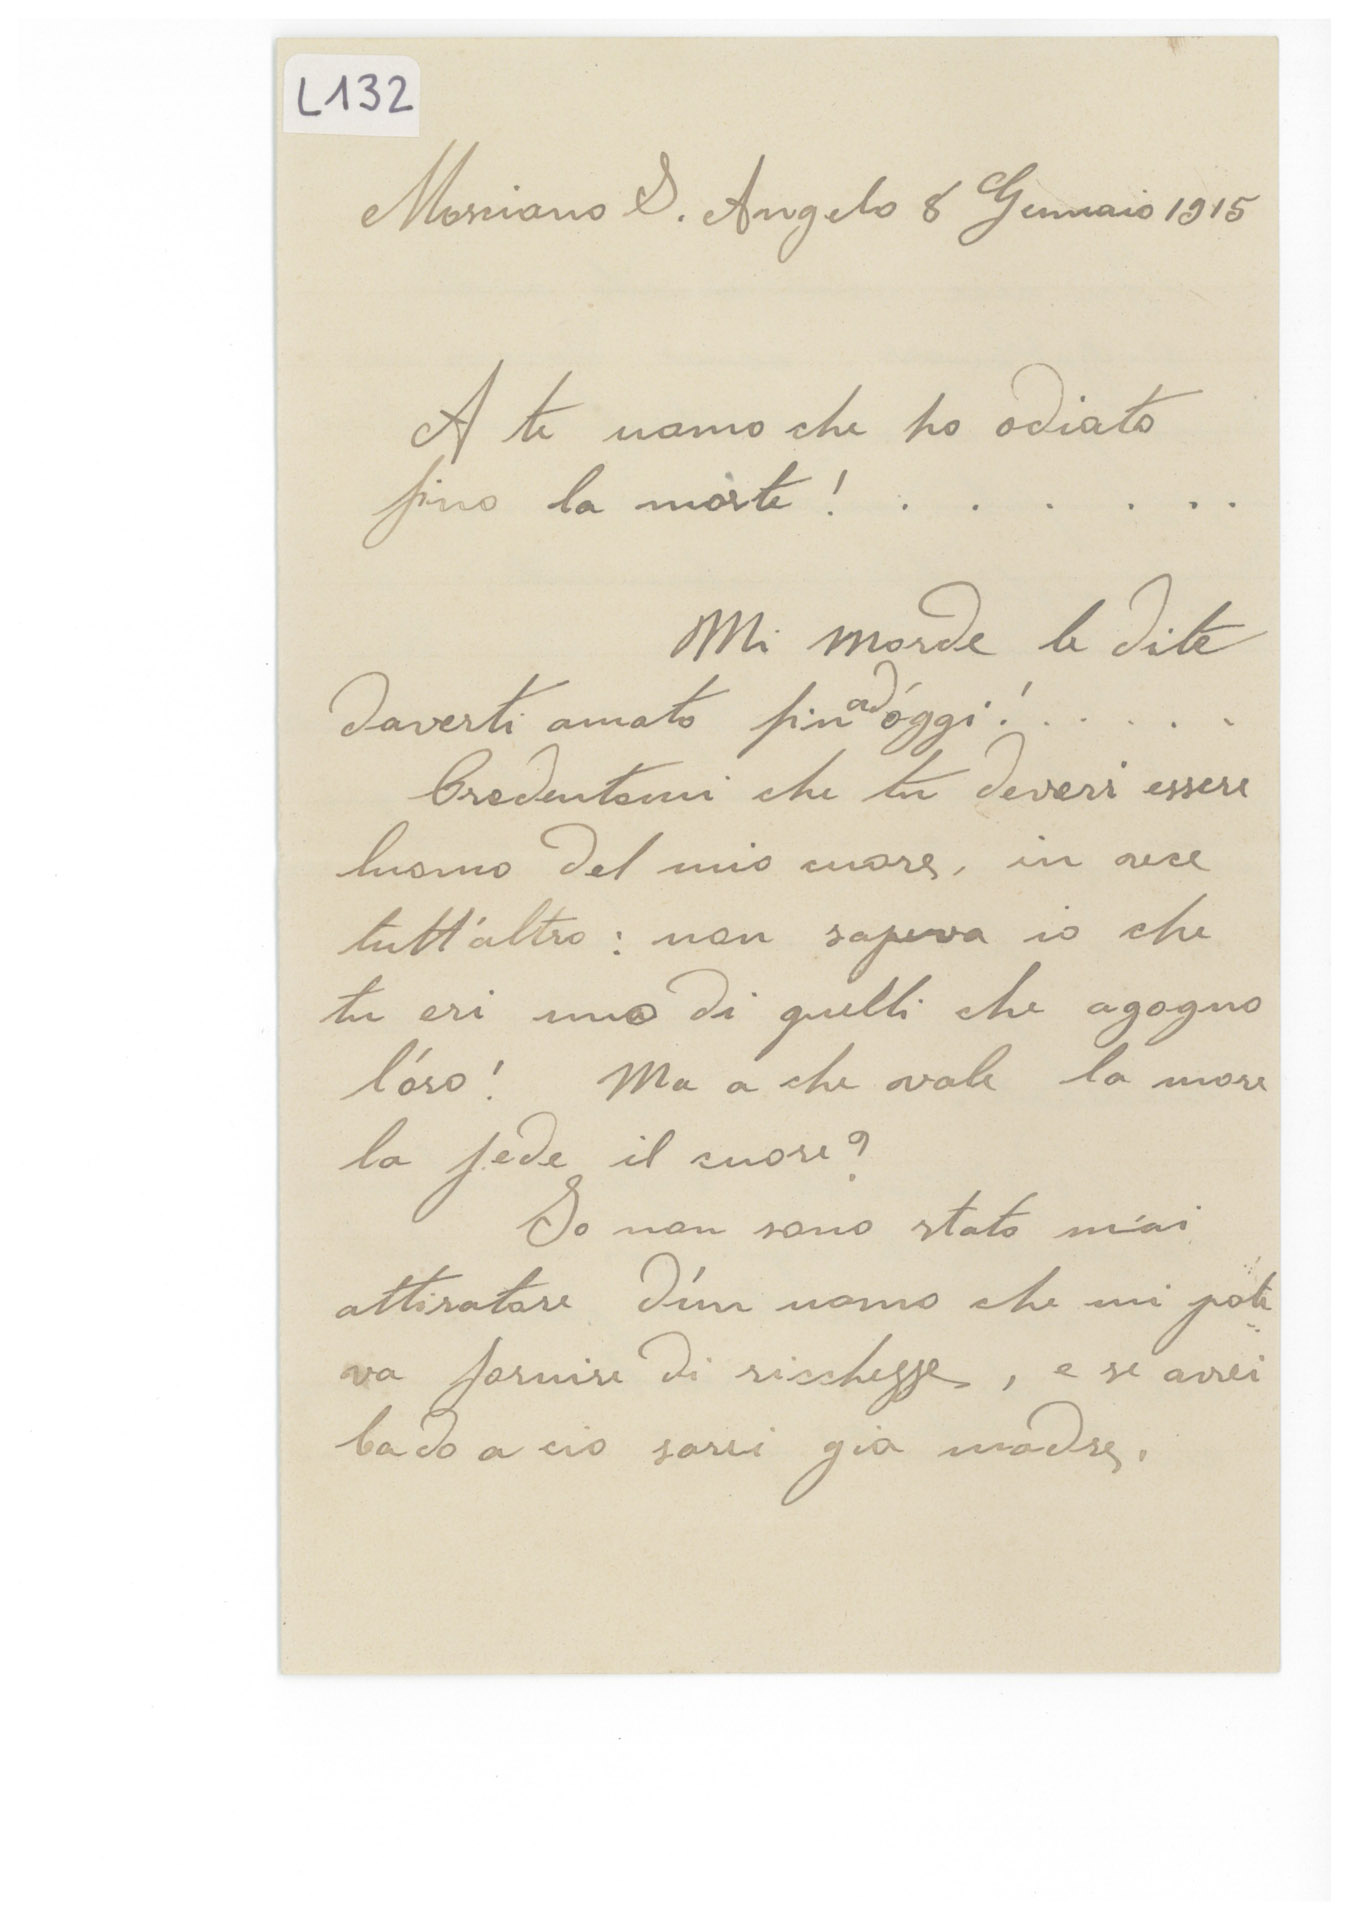 L132
Mosciano S. Angelo 8 Gennaio 1915
A te uomo che ho odiato
fino la morte! . . . . . . .
Mi morde le dite
daverti amato fin ad óggi! . . . . .
Credentomi che tu deveri essere
luomo del mio cuore, in vece
tutt'altro: non sapeva io che
tu eri uno di quelli che agogno
l'óro! Ma a che vale la more
la fede il cuore?
Io non sono stato mai
attiratore d'ún uomo che mi pote
va fornire di ricchezze, e se avrei
bado a cio sarei gia madre,